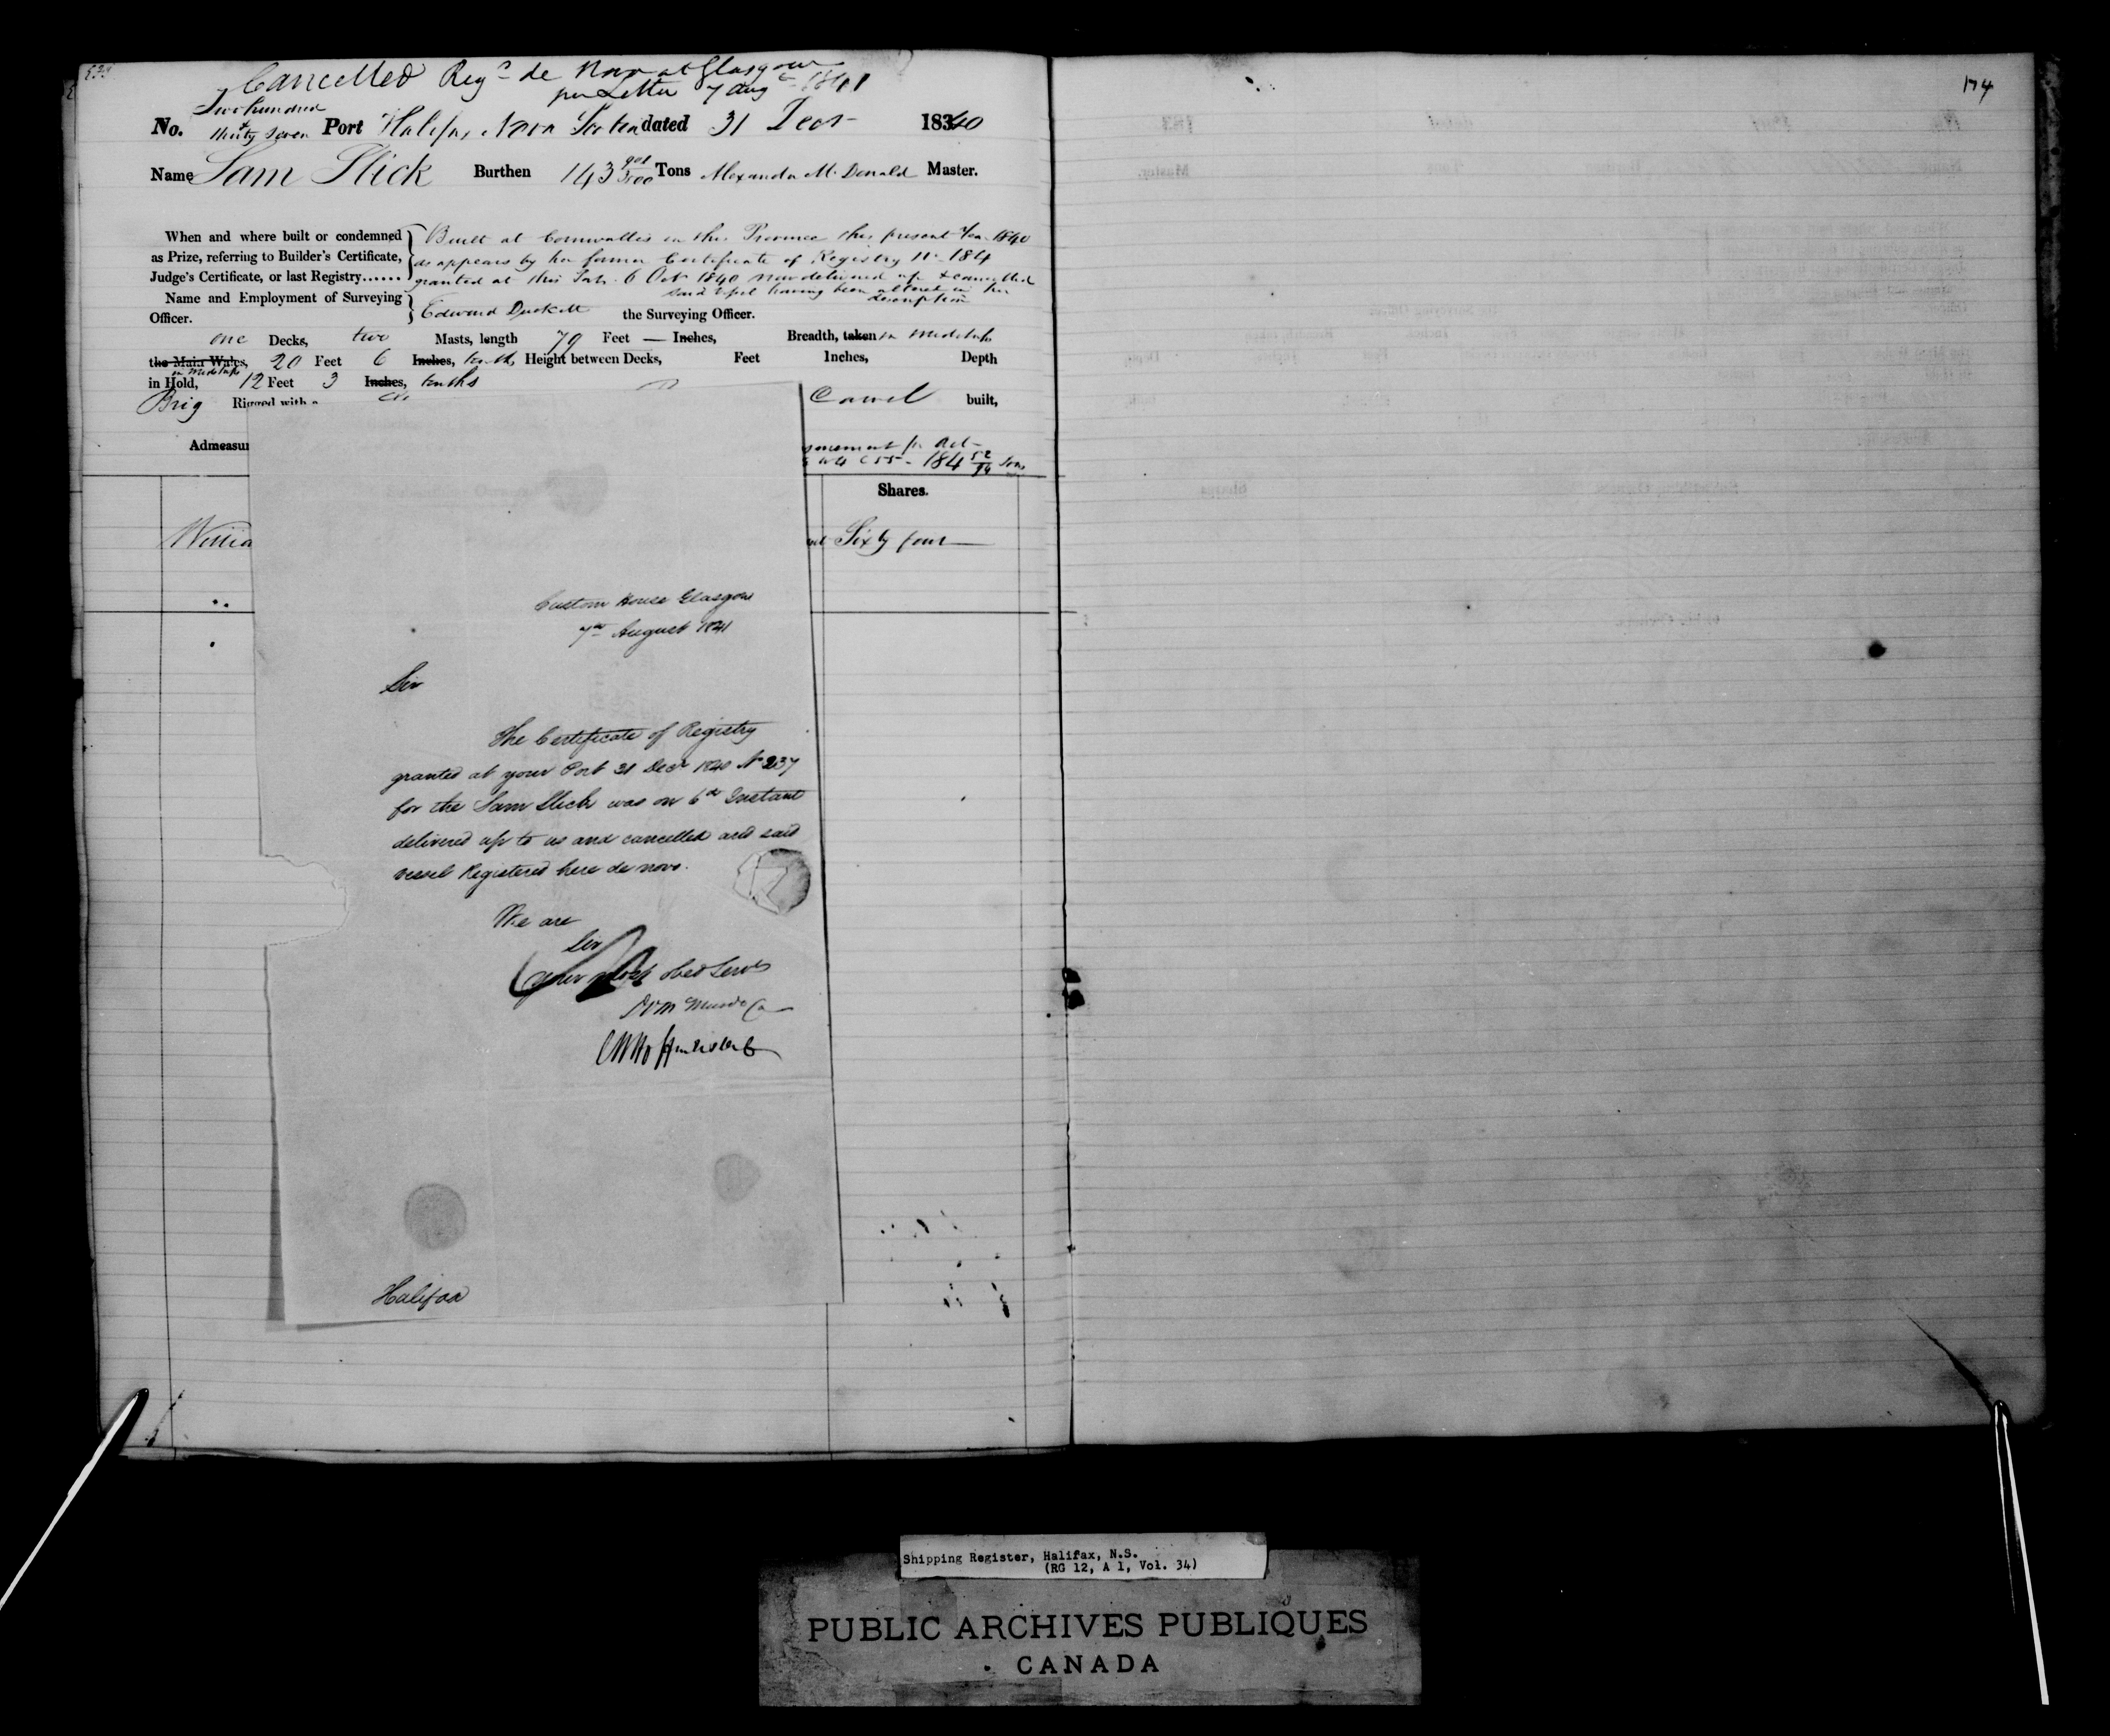 Cancelled Reg^d de Novo at Glasgow
per Letter 7 Aug^t 1841
No. Two hundred & thirty seven Port Halifax, Nova Scotia dated 31 Decr 1840
Name Sam Slick Burthen 143 901/3500 Tons Alexander McDonald Master.
When and where built or condemned as Prize, referring to Builder's Certificate, Judge's Certificate, or last Registry......
Built at Cornwallis in this Province this present Year 1840
as appears by her former Certificate of Registry No 184
granted at this Port 6 Oct 1840 now delivered up & cancelled
said Vessel having been altered in her description
Name and Employment of Surveying Officer. Edward Duckett the Surveying Officer.
one Decks, two Masts, length 79 Feet — Inches, Breadth, taken in Midships
the Main Wales, 20 Feet 6 Inches, tenths, Height between Decks, Feet Inches, Depth
in Midships
in Hold, 12 Feet 3 Inches, tenths
Brig Rigged with a
Carvel built,
Admeasu
surement pr Act
184 52/94 Tons
Shares.
Willia
Sixty four
Custom House Glasgow
7th August 1841
Sir
The Certificate of Registry
granted at your Port 31 Decr 1840 No 237
for the Sam Slick was on 6th Instant
delivered up to us and cancelled and said
vessel Registered here de novo.
We are
Sir
Your Most Obed Servts
Halifax
174
Shipping Register, Halifax, N.S.
(RG 12, A 1, Vol. 34)
PUBLIC ARCHIVES PUBLIQUES
CANADA